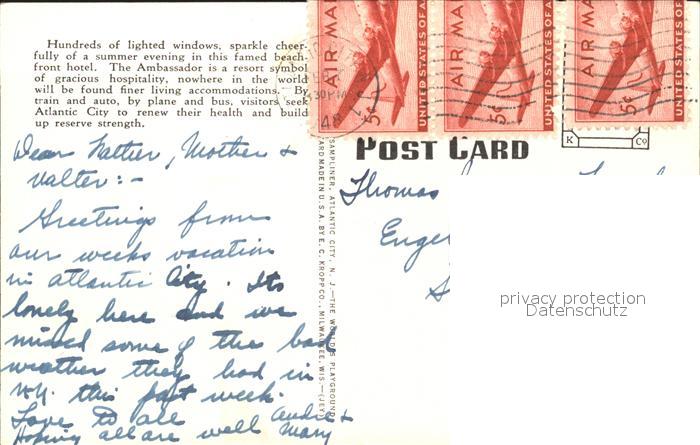 Hundreds of lighted windows, sparkle cheer-
fully of a summer evening in this famed beach-
front hotel. The Ambassador is a resort symbol
of gracious hospitality, nowhere in the world
will be found finer living accommodations. By
train and auto, by plane and bus, visitors seek
Atlantic City to renew their health and build
up reserve strength.
Dear Father, Mother &
Walter:-
Greetings from
our weeks vacation
in atlantic City. Its
lonely here and we
missed some of the bad
weather they had in
N.Y. this past week.
Love to all
Hoping all are well
Andre &
Mary
SAMPLINER, ATLANTIC CITY, N. J.—THE WORLD'S PLAYGROUND
CARD MADE IN U.S.A. BY E. C. KROPP CO., MILWAUKEE, WIS.—(JEY)
AIR MA
5¢
UNITED STATES OF A
AIR MA
5¢
UNITED STATES OF A
AIR MA
5¢
UNITED STATES OF
30 PM
48
K Co
POST CARD
Thomas
Enge
S
privacy protection
Datenschutz